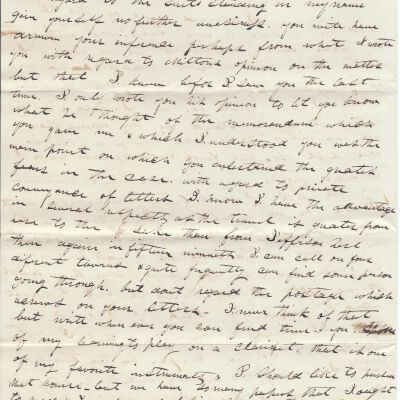 regard to the Suits Standing in my name
give yourself no further uneasiness. you must have
drawn your inference perhaps from what I wrote
you with regard to opinion on the matter
but that I knew before I saw you the last
time. I only wrote you his opinion to let you know
what he thought of the memorandum which
you gave me & which I understood you was the
main point on which you entertained the greatest
fears in the case. with regard to private
conveyance of letters I know I have the advantage
in several respects as the travel is greater from
here to the than from Jefferson
then again in fifteen minutes I can call on four
diferent taverns & quite frequently can find some person
going through. but dont regard the postage which
accrues on your letters. I never think of that
but write when ever you can find time. you
of my learning to play on a clarinet. that is one
of my favorite instruments & I should like to
that course. but we have so many pupils that I ought